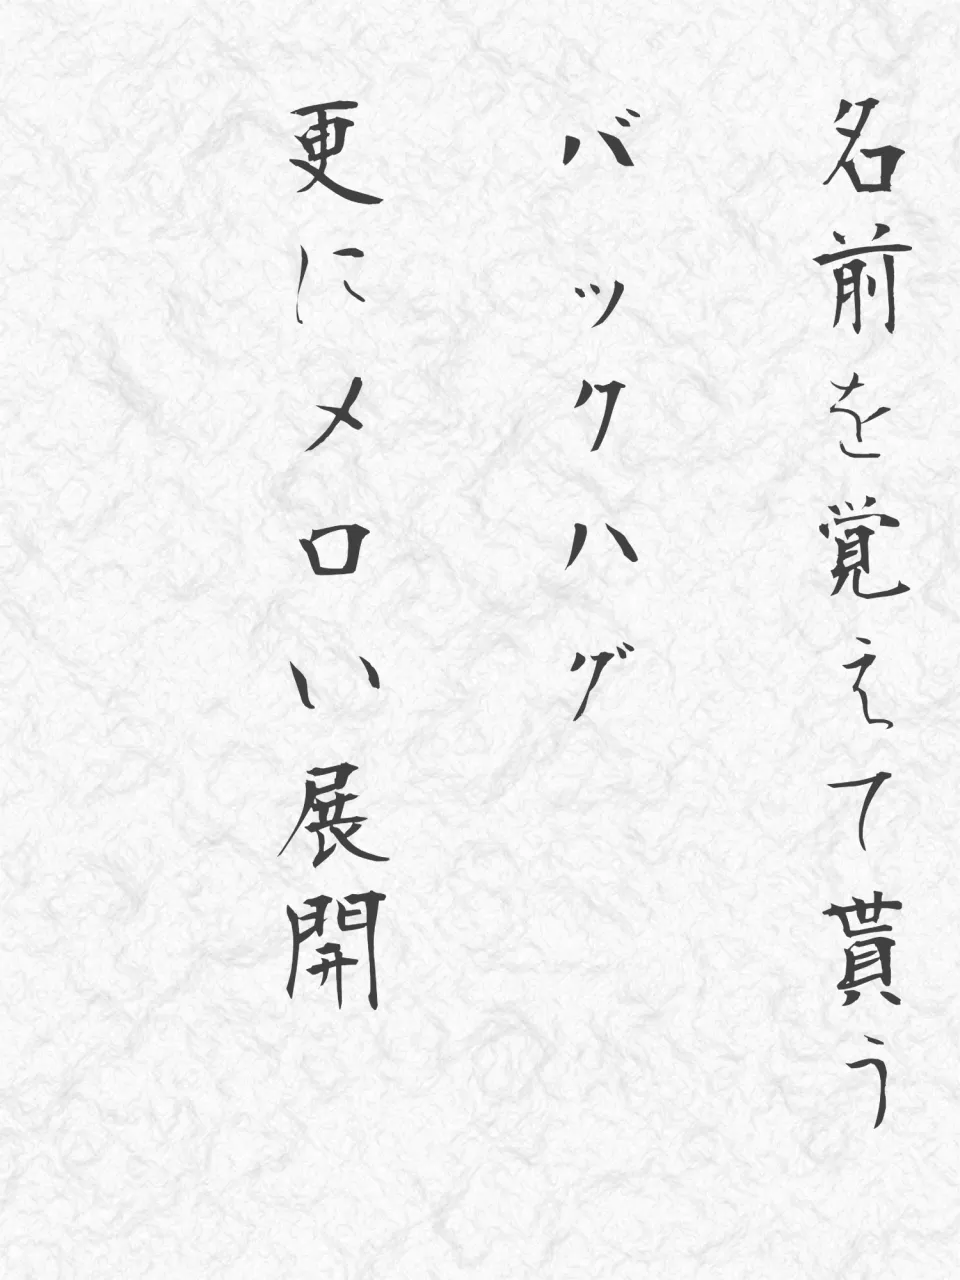 名前を覚えて貰う
バックハグ
更にメロい展開